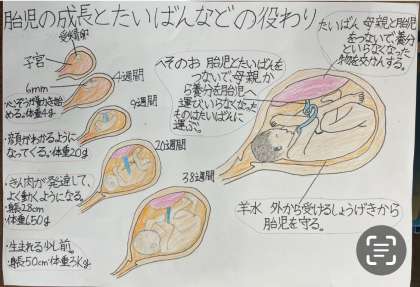 胎児の成長とたいばんなどの役わり
受精卵
子宮
4週間
6mm
心ぞうが動き始
める。体重4g
9週間
・顔がわかるように
なってくる。・体重20g
20週間
・きん肉が発達して、
よく動くようになる。
・身長28cm
・体重650g
38週間
・生まれる少し前。
・身長50cm・体重3Kg
へそのお 胎児とたいばんを
つないで、母親か
ら養分を胎児へ
運び、いらなくなった
ものはたいばんに
運ぶ。
たいばん 母親と胎児
をつないで、養分
といらなくなった
物を交かんする。
羊水 外から受けるしょうげきから
胎児を守る。